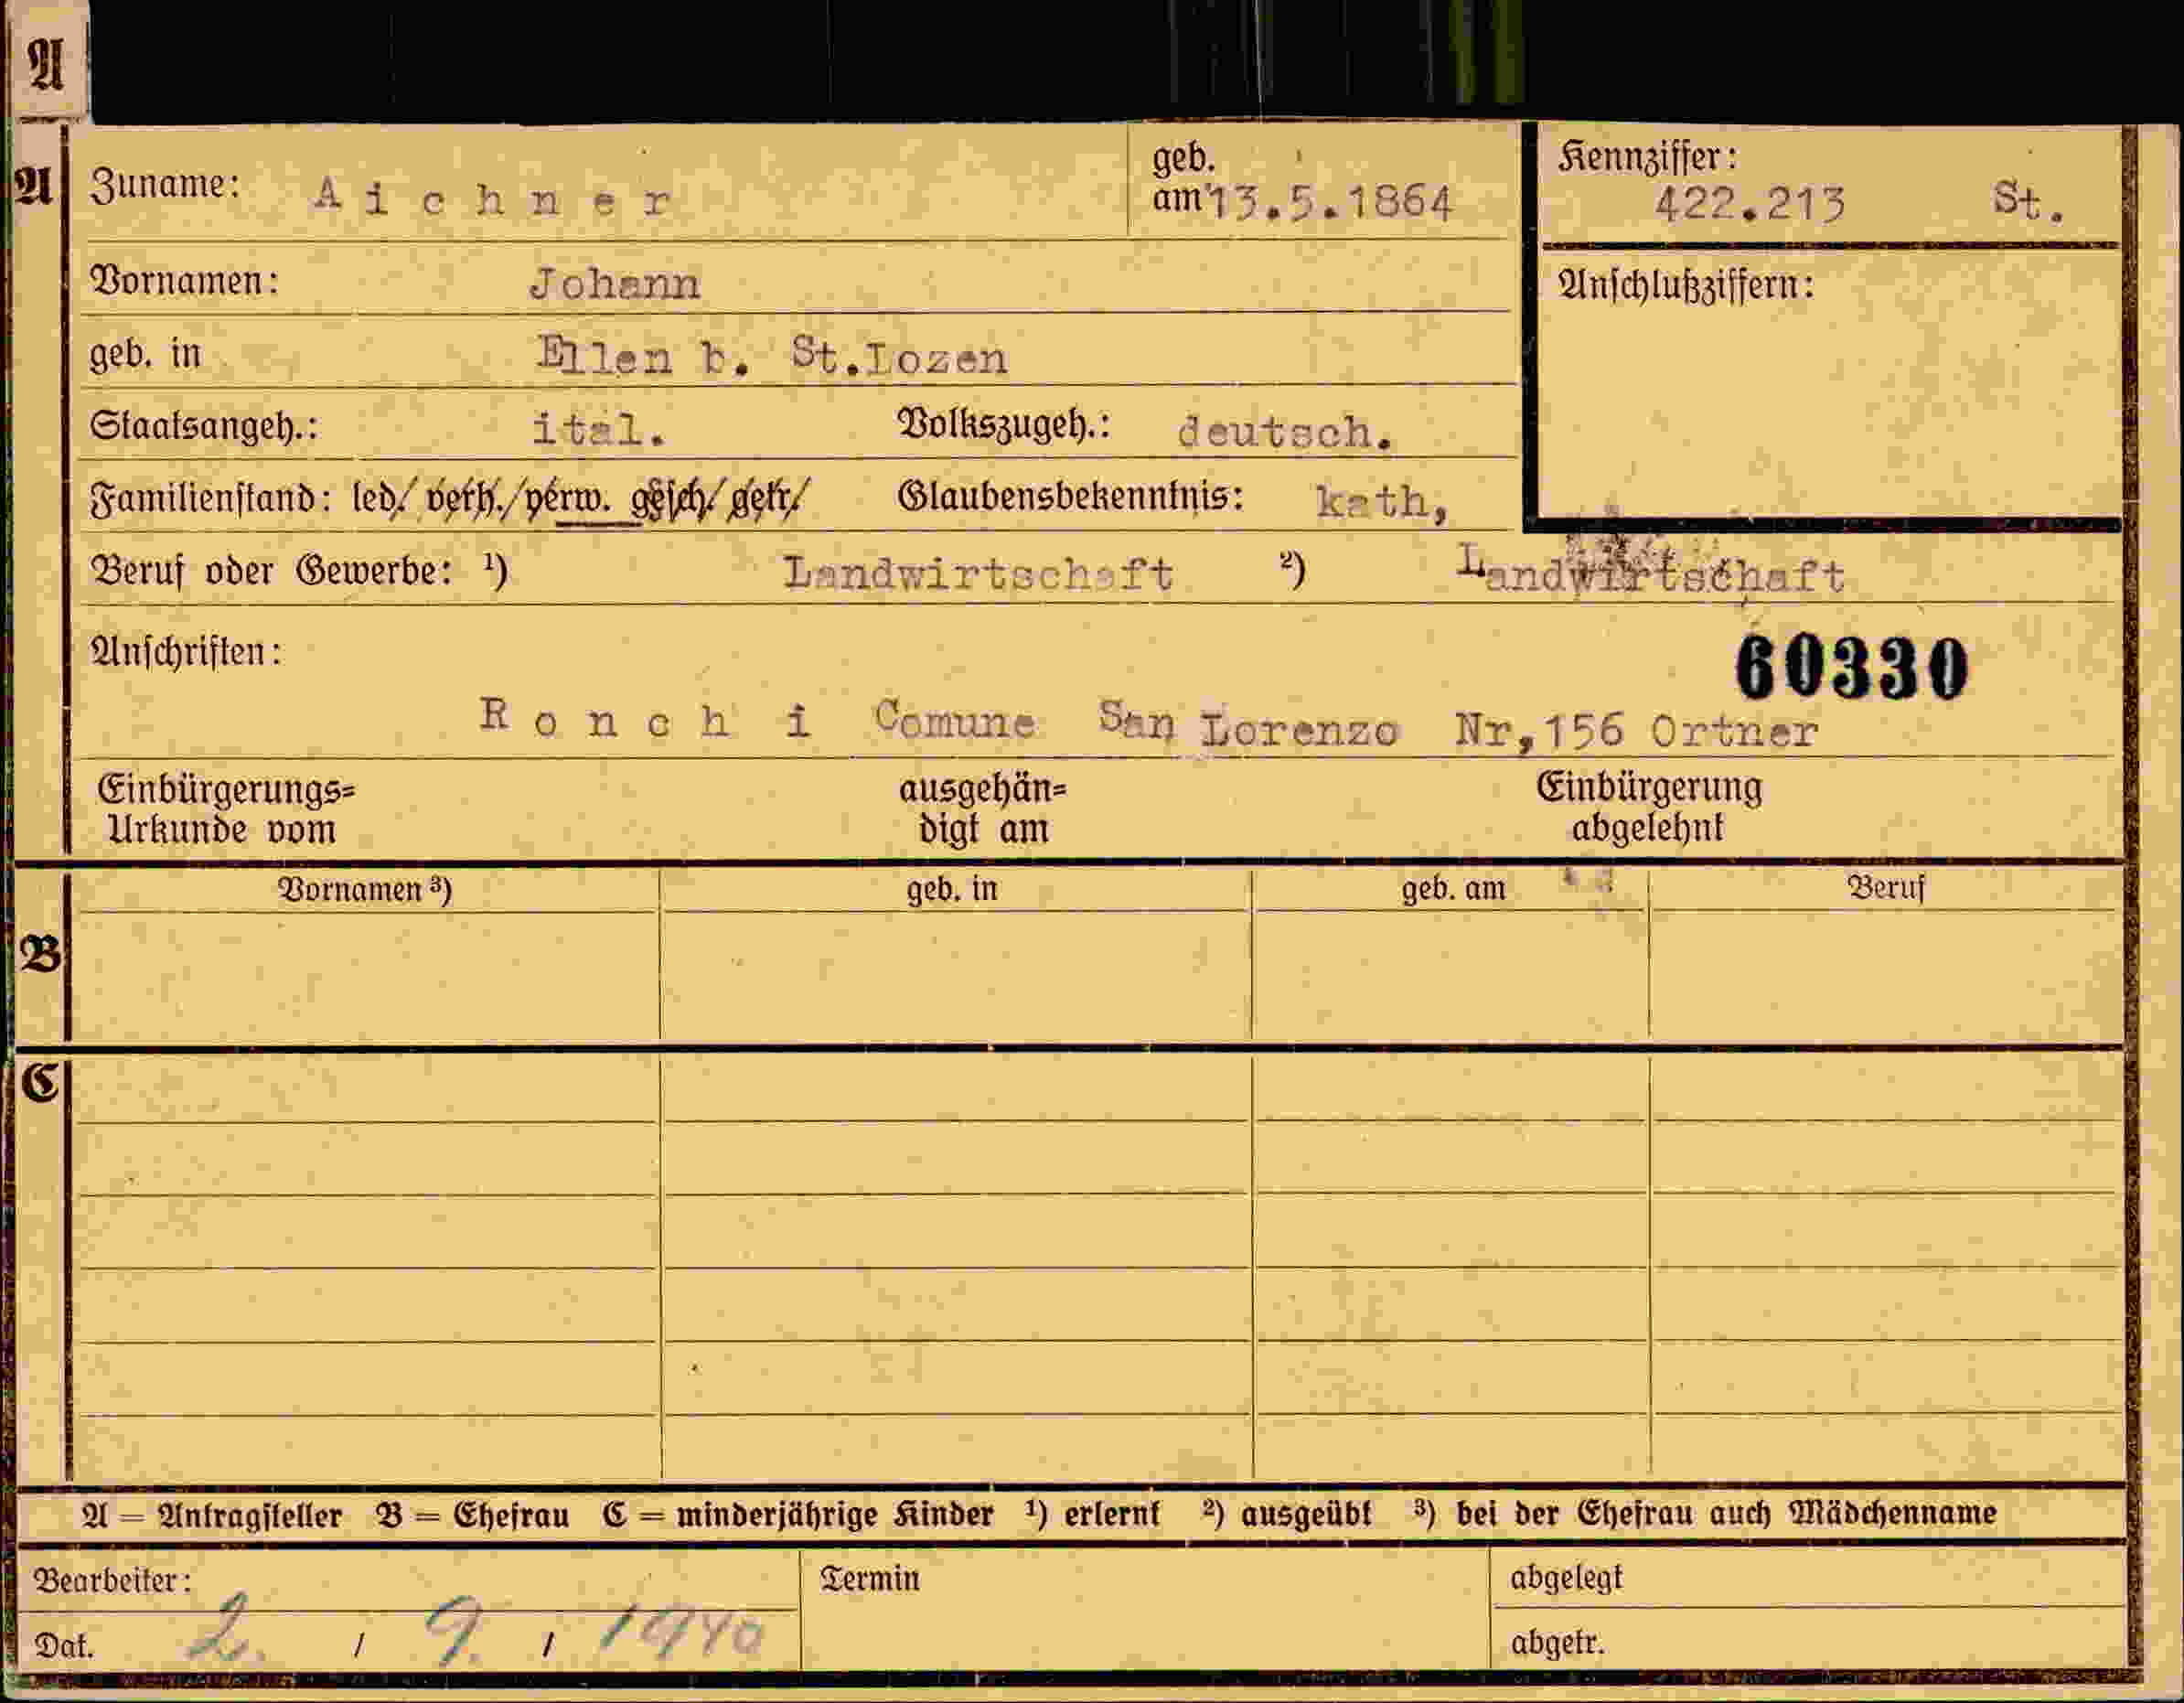 A
A
Zuname: Aichner geb. am 13.5.1864 Kennziffer: 422.213 St.
Vornamen: Johann Anschlußziffern:
geb. in Ellen b. St.Lozen
Staatsangeh.: ital. Volkszugeh.: deutsch.
Familienstand: led/ verh./ verw. gesch/ getr/ Glaubensbekenntnis: kath,
Beruf oder Gewerbe: ¹) Landwirtschaft ²) Landwirtschaft
Anschriften:
60330
Ronchi Comune San Lorenzo Nr,156 Ortner
Einbürgerungs= ausgehän= Einbürgerung
Urkunde vom digt am abgelehnt
Vornamen ³) geb. in geb. am Beruf
B
C
A = Antragsteller B = Ehefrau C = minderjährige Kinder ¹) erlernt ²) ausgeübt ³) bei der Ehefrau auch Mädchenname
Bearbeiter: Termin abgelegt
Dat. 2. / 9. / 1940 abgetr.